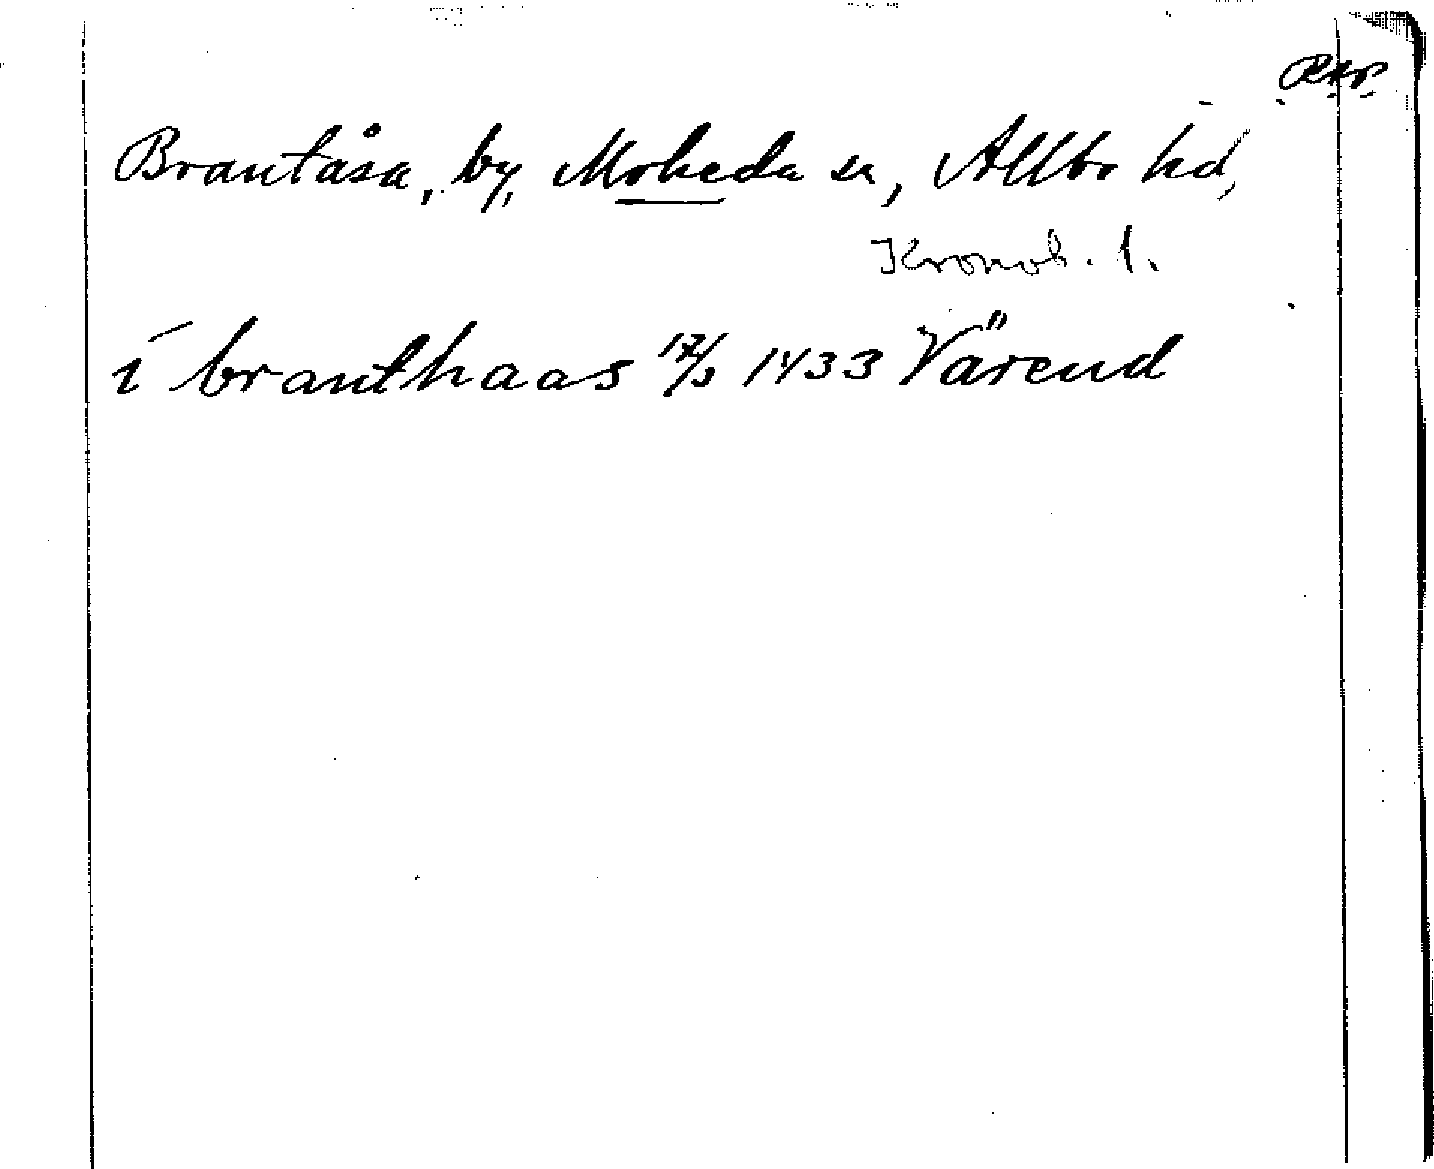 Rep.
Brantåsa, by, Moheda sn, Allbo hd,
Kronob. l.
i branthaas 17/3 1433 Värend